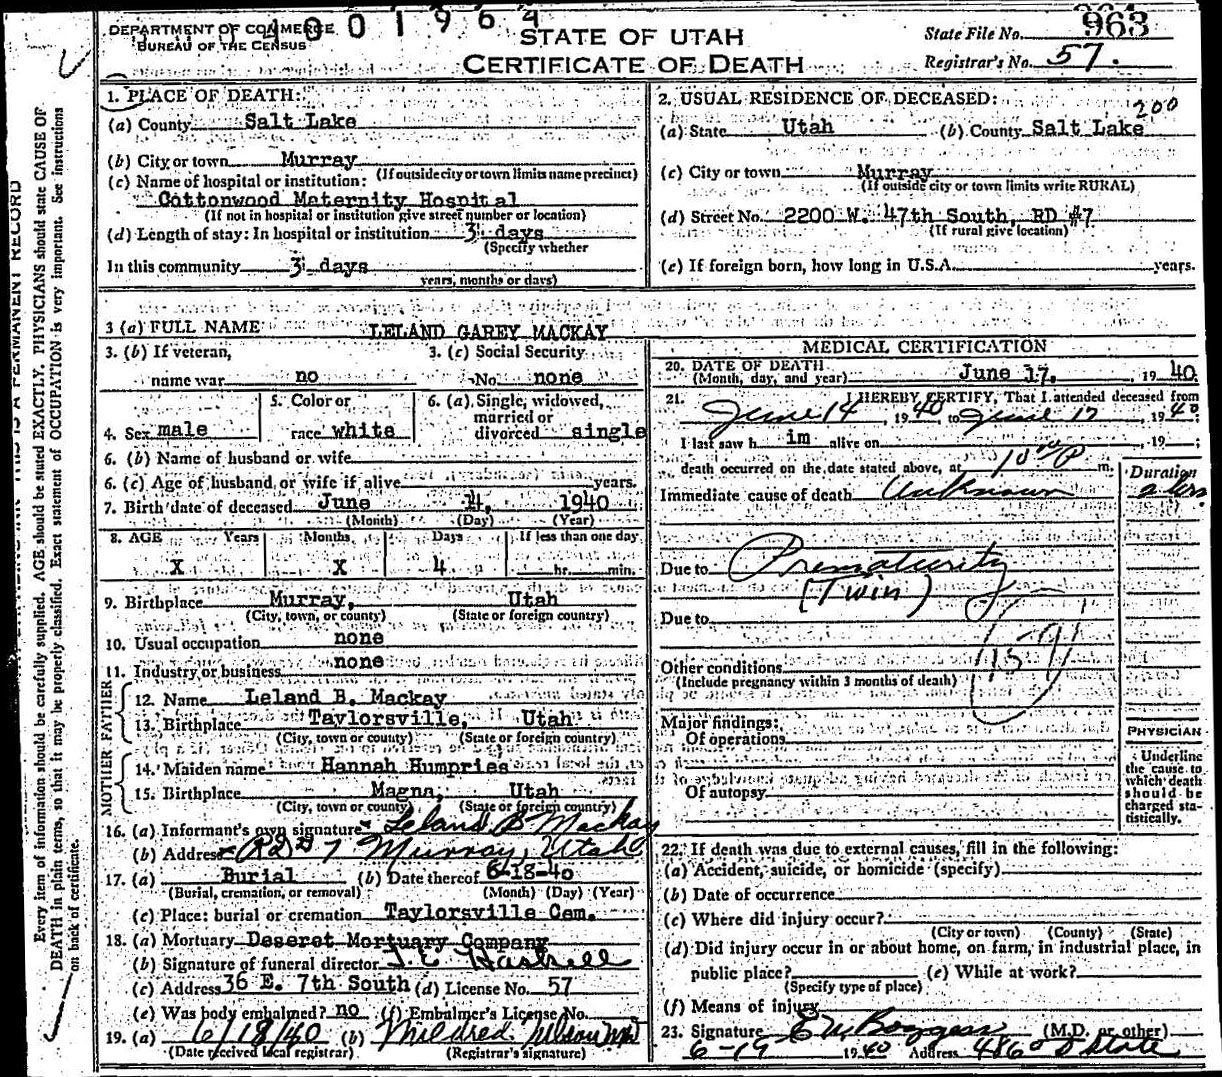 1001964
DEPARTMENT OF COMMERCE
BUREAU OF THE CENSUS
STATE OF UTAH
CERTIFICATE OF DEATH
State File No. 963
Registrar's No. 57.
1. PLACE OF DEATH:
(a) County Salt Lake
(b) City or town Murray
(If outside city or town limits name precinct)
(c) Name of hospital or institution:
Cottonwood Maternity Hospital
(If not in hospital or institution give street number or location)
(d) Length of stay: In hospital or institution 3 days
(Specify whether
In this community 3 days
years, months or days)
2. USUAL RESIDENCE OF DECEASED:
200
(a) State Utah (b) County Salt Lake
(c) City or town Murray
(If outside city or town limits write RURAL)
(d) Street No. 2200 W. 47th South, RD #7
(If rural give location)
(e) If foreign born, how long in U.S.A. years.
3 (a) FULL NAME LELAND GAREY MACKAY
3. (b) If veteran, 3. (c) Social Security
name war no No. none
5. Color or 6. (a) Single, widowed,
married or
4. Sex male race white divorced single
6. (b) Name of husband or wife
6. (c) Age of husband or wife if alive years.
7. Birth date of deceased June 14, 1940
(Month) (Day) (Year)
8. AGE Years Months Days If less than one day
X X 4 hr. min.
9. Birthplace Murray, Utah
(City, town, or county) (State or foreign country)
10. Usual occupation none
11. Industry or business none
FATHER
12. Name Leland B. Mackay
13. Birthplace Taylorsville, Utah
(City, town or county) (State or foreign country)
MOTHER
14. Maiden name Hannah Humpries
15. Birthplace Magna, Utah
(City, town or county) (State or foreign country)
16. (a) Informant's own signature Leland B Mackay
(b) Address RD # 7 Murray, Utah
17. (a) Burial (b) Date thereof 6-18-40
(Burial, cremation, or removal) (Month) (Day) (Year)
(c) Place: burial or cremation Taylorsville Cem.
18. (a) Mortuary Deseret Mortuary Company
(b) Signature of funeral director
(c) Address 36 E. 7th South (d) License No. 57
(e) Was body embalmed? no (f) Embalmer's License No.
19. (a) 6/18/40 (b) Mildred Nelson
(Date received local registrar) (Registrar's signature)
MEDICAL CERTIFICATION
20. DATE OF DEATH
(Month, day, and year) June 17, 1940
21. I HEREBY CERTIFY, That I attended deceased from
June 14, 1940, to June 17 1940;
I last saw him alive on , 19 ;
death occurred on the date stated above, at 10 P m.
Duration
Immediate cause of death Unknown
Due to Prematurity
(Twin)
Due to
159
Other conditions
(Include pregnancy within 3 months of death)
Major findings:
Of operations
Of autopsy
PHYSICIAN
Underline
the cause to
which death
should be
charged sta-
tistically.
22. If death was due to external causes, fill in the following:
(a) Accident, suicide, or homicide (specify)
(b) Date of occurrence
(c) Where did injury occur?
(City or town) (County) (State)
(d) Did injury occur in or about home, on farm, in industrial place, in
public place? (e) While at work?
(Specify type of place)
(f) Means of injury
23. Signature (M.D. or other)
6-19 1940 Address 4860 S State
Every item of information should be carefully supplied. AGE should be stated EXACTLY. PHYSICIANS should state CAUSE OF
DEATH in plain terms, so that it may be properly classified. Exact statement of OCCUPATION is very important. See instructions
on back of certificate.
THIS IS A PERMANENT RECORD